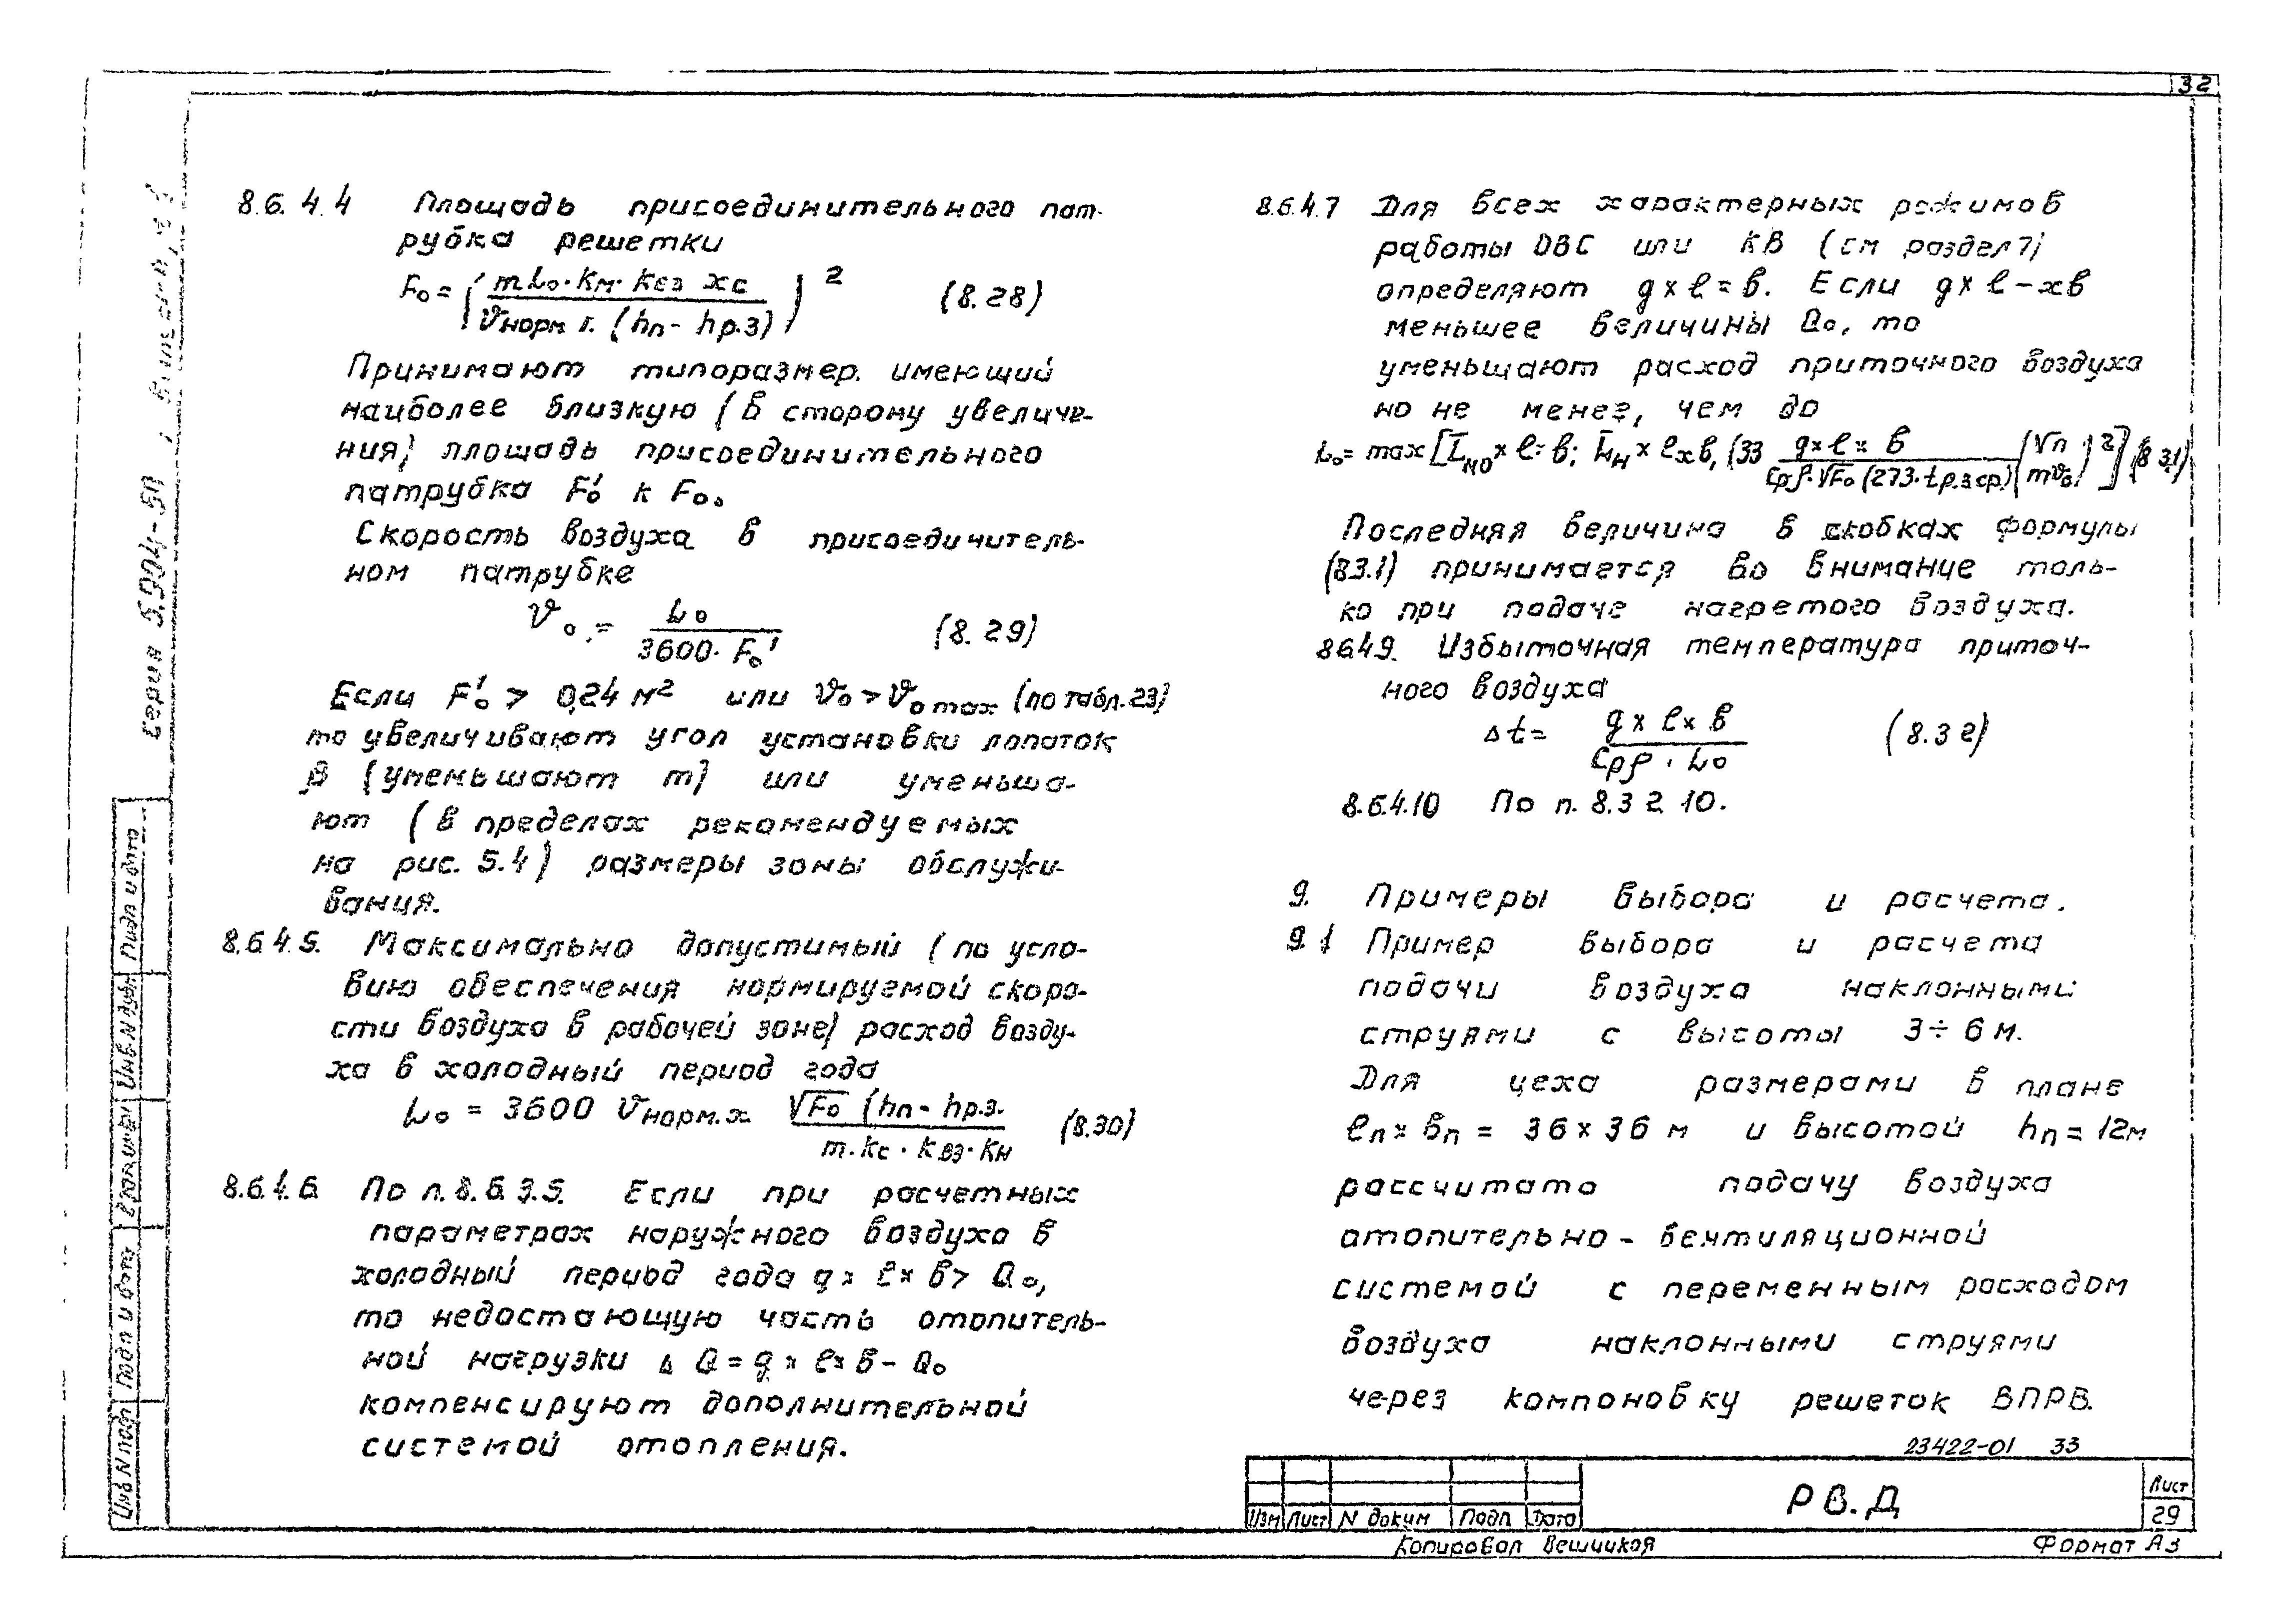 32
8.6.4.4 Площадь присоединительного пат-
рубка решетки
F₀ = (m L₀·Kм·Kвз Kс / Vнорм г. (hп - hр.з))² (8.28)
Принимают типоразмер, имеющий
наиболее близкую (в сторону увеличе-
ния) площадь присоединительного
патрубка F₀' к F₀.
Скорость воздуха в присоединитель-
ном патрубке
V₀ = L₀ / 3600·F₀' (8.29)
Если F₀' > 0,24 м² или V₀ > V₀ max (по табл.23)
то увеличивают угол установки лопаток
β (уменьшают m) или уменьша-
ют (в пределах рекомендуемых
на рис. 5.4) размеры зоны обслужи-
вания.
8.6.4.5. Максимально допустимый (по усло-
вию обеспечения нормируемой скоро-
сти воздуха в рабочей зоне) расход возду-
ха в холодный период года
L₀ = 3600 Vнорм.х √F₀ (hп - hр.з. / m·Kс·Kвз·Kн (8.30)
8.6.4.6. По п.8.6.3.5. Если при расчетных
параметрах наружного воздуха в
холодный период года q × ℓ × в > Q₀,
то недостающую часть отопитель-
ной нагрузки Δ Q = q × ℓ × в - Q₀
компенсируют дополнительной
системой отопления.
8.6.4.7 Для всех характерных режимов
работы ОВС или КВ (см раздел 7)
определяют q × ℓ = в. Если q × ℓ - хв
меньшее величины Q₀, то
уменьшают расход приточного воздуха
но не менее, чем до
L₀ = max [L̄мо × ℓ × в; L̄н × ℓ × в, (33 q × ℓ × в / Cpρ·√F₀ (273·tр.з ср) (√п / mV₀)²] (8.31)
Последняя величина в скобках формулы
(83.1) принимается во внимание толь-
ко при подаче нагретого воздуха.
8649. Избыточная температура приточ-
ного воздуха
Δt = q × ℓ × в / Cpρ · L₀ (8.32)
8.6.4.10 По п. 8.3 2 10.
9. Примеры выбора и расчета.
9.1 Пример выбора и расчета
подачи воздуха наклонными
струями с высоты 3÷6 м.
Для цеха размерами в плане
ℓп × вп = 36 × 36 м и высотой hп = 12м
рассчитать подачу воздуха
отопительно-вентиляционной
системой с переменным расходом
воздуха наклонными струями
через компоновку решеток ВПРВ.
23422-01 33
Изм Лист N доким Подп Дата
РВ.Д
Лист
29
Копировал Вешчикоя
Формат А3
серия 5.904-50
Подп и дата
Инв.N дубл
Взам.инв
Подп и дата
Инв N подл